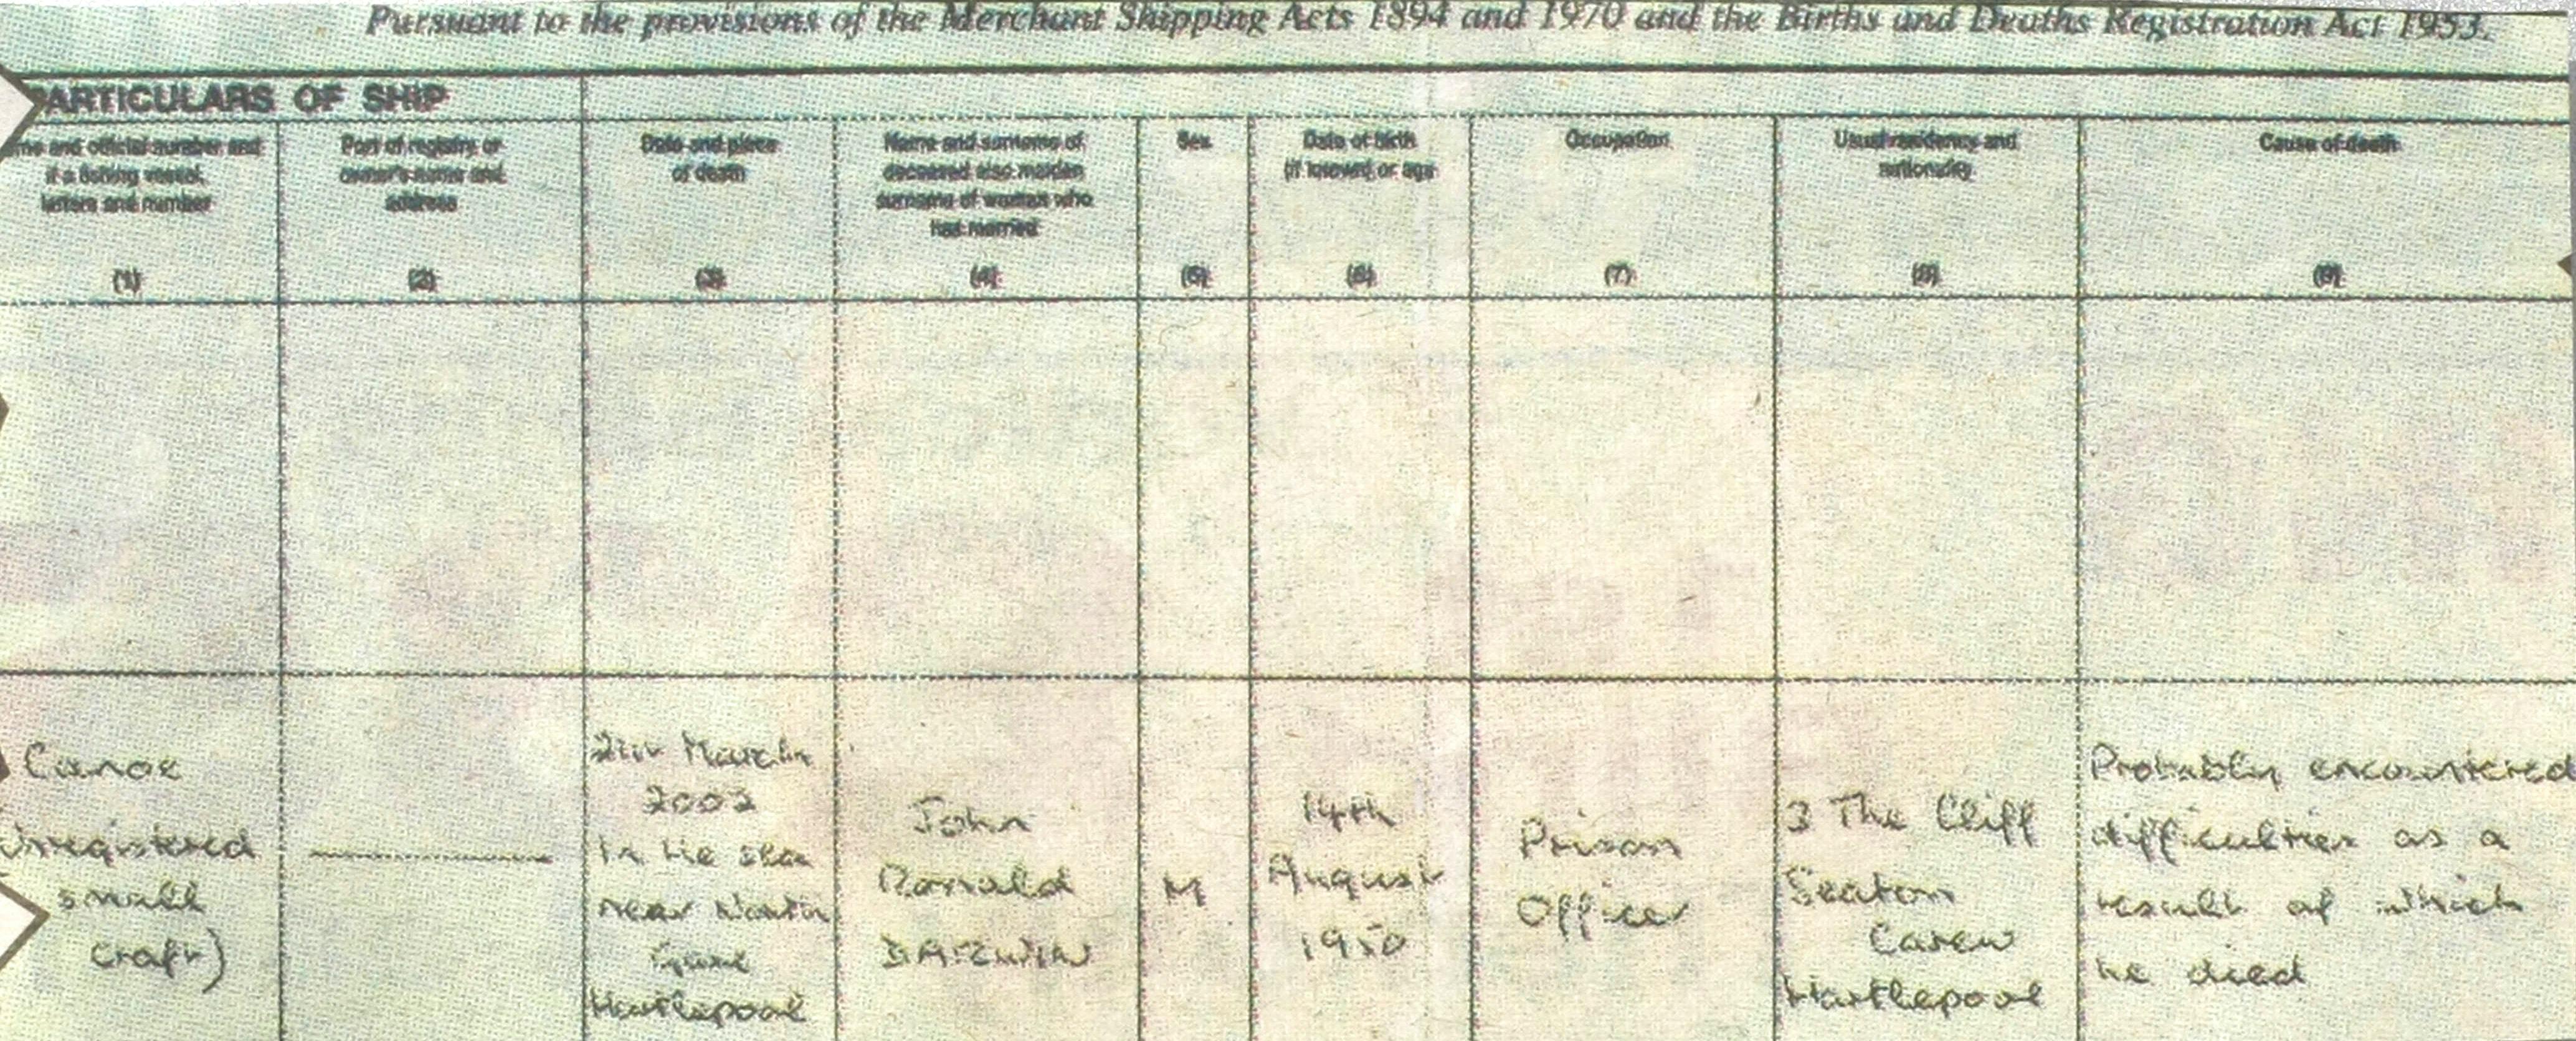 Pursuant to the provisions of the Merchant Shipping Acts 1894 and 1970 and the Births and Deaths Registration Act 1953.
PARTICULARS OF SHIP
me and official number and
if a fishing vessel,
letters and number
(1)
Port of registry or
owner's name and
address
(2)
Date and place
of death
(3)
Name and surname of
deceased also maiden
surname of woman who
has married
(4)
Sex
(5)
Date of birth
(if known) or age
(6)
Occupation
(7)
Usual residency and
nationality
(8)
Cause of death
(9)
Canoe
Unregistered
small
craft)
March
2002
In the sea
near North
Hartlepool
John
Ronald
DARWIN
M
14th
August
1950
Prison
Officer
3 The Cliff
Seaton
Carew
Hartlepool
Probably encountered
difficulties as a
result of which
he died